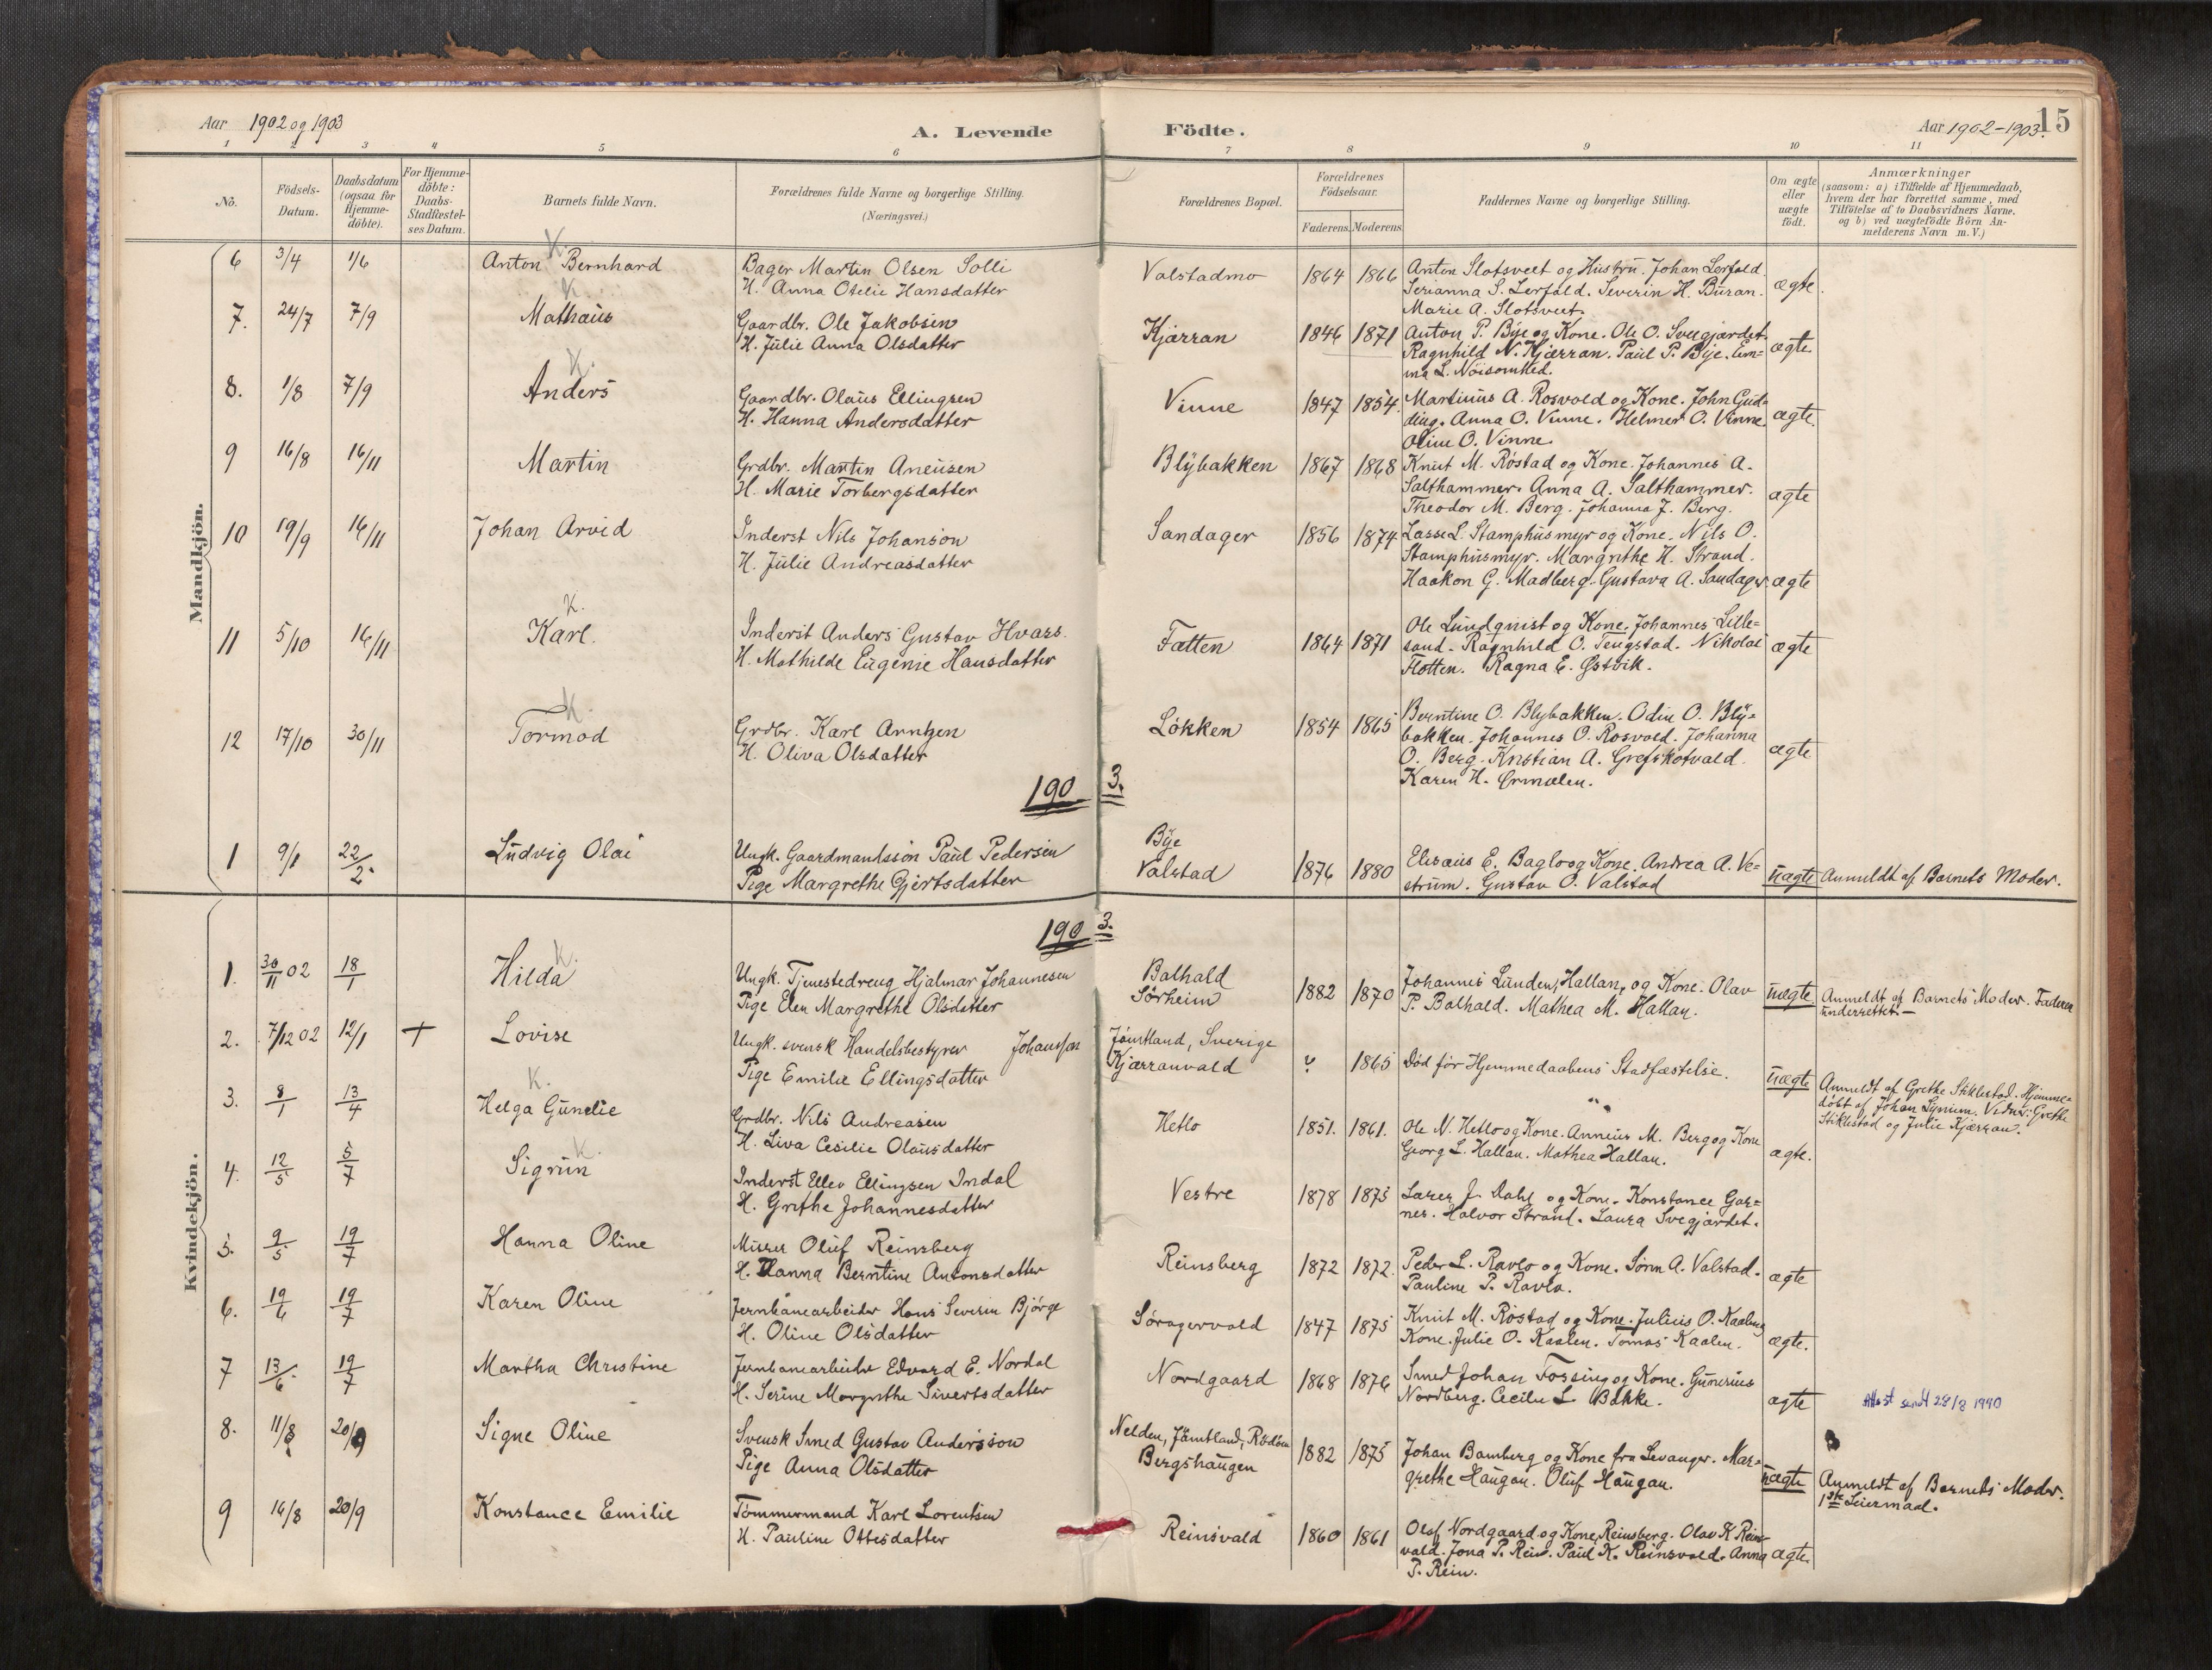 Aar 1902 og 1903
A. Levende Födte.
Aar 1902-1903.
15
1 2 3 4 5 6 7 8 9 10 11
No.
Födsels-Datum.
Daabsdatum (ogsaa for Hjemme-döbte).
For Hjemme-döbte: Daabs-Stadfæstel-ses Datum.
Barnets fulde Navn.
Forældrenes fulde Navne og borgerlige Stilling.
(Næringsvei.)
Forældrenes Bopæl.
Forældrenes Födselsaar.
Faderens. Moderens.
Faddernes Navne og borgerlige Stilling.
Om ægte eller uægte födt.
Anmærkninger
(saasom: a) i Tilfælde af Hjemmedaab,
hvem der har forrettet samme, med
Tilföielse af to Daabsvidners Navne.
og b) ved uægtefödte Börn An-
melderens Navn m. V.)
Mandkjön.
6 3/4 1/6 Anton Bernhard K.
Bager Martin Olsen Solli
H. Anna Otelie Hansdatter
Valstadmo 1864 1866
Anton Slotsveet og Hustru. Johan Lerfald.
Serianna S. Lerfald. Severin H. Buran.
Marie A. Slotsveet.
ægte.
7. 24/7 7/9 Mathæus K.
Gaardbr. Ole Jakobsen
H. Julie Anna Olsdatter
Kjærran 1846 1871
Anton P. Bye og Kone. Ole O. Sveegjærdet.
Ragnhild N. Kjærran. Paul P. Bye. Em=
ma L. Nöisomhed.
ægte.
8. 1/8 7/9 Anders K.
Gaardbr. Olaus Ellingsen
H. Hanna Andersdatter
Vinne 1847 1854.
Martinus A. Rosvold og Kone. John Gud=
ding. Anna O. Vinne. Helmer O. Vinne.
Oline O. Vinne.
ægte.
9 16/8 16/11 Martin
Grdbr. Martin Aneusen
H. Marie Torbergsdatter
Blybakken 1867 1868
Knut M. Röstad og Kone. Johannes A.
Salthammer. Anna A. Salthammer.
Theodor M. Berg. Johanna J. Berg.
ægte
10 19/9 16/11 Johan Arvid
Inderst Nils Johanson
H. Julie Andreasdatter
Sandager 1856 1874
Lasse L. Stamphusmyr og Kone. Nils O.
Stamphusmyr. Margrethe H. Strand.
Haakon G. Madberg. Gustava A. Sandager.
ægte
11 5/10 16/11 Karl. K.
Inderst Anders Gustav Hvass.
H. Mathilde Eugenie Hansdatter
Fætten 1864 1871
Ole Lundqvist og Kone. Johannes Lille=
sand. Ragnhild O. Tengstad. Nikolai
Flotten. Ragna E. Østvik.
ægte
12 17/10 30/11 Tormod K.
Grdbr. Karl Arntzen
H. Oliva Olsdatter
Lökken 1854 1865
Berntine O. Blybakken. Odin O. Bly=
bakken. Johannes O. Rosvold. Johanna
O. Berg. Kristian A. Grefskotvald.
Karen H. Ormælen.
ægte
1903.
1 9/1 22/2. Ludvig Olai
Ungk. Gaardmandssön Paul Pedersen
Pige Margrethe Gjertsdatter
Bye
Valstad
1876 1880
Elesæus E. Bagloog Kone. Andrea A. Ve=
strum. Gustav O. Valstad
uægte
Anmeldt af Barnets Moder.
Kvindekjön.
1903.
1. 30/11 02 18/1 Hilda K.
Ungk. Tjenestedreng Hjalmar Johannesen
Pige Elen Margrethe Olsdatter
Balhald
Sörheim
1882 1870
Johannes Lunden, Hallan, og Kone. Olav
P. Balhald. Mathea M. Hallan.
uægte
Anmeldt af Barnets Moder. Faderen
underrettet.
2. 7/12 02 12/1 + Lovise
Ungk. svensk Handelsbestyrer Johansson
Pige Emilie Ellingsdatter
Jämtland, Sverige
Kjærranvald
? 1865
Död för Hjemmedaabens Stadfæstelse.
uægte
Anmeldt af Grethe Stiklestad. Hjemme=
döbt af Johan Lynum. Vidner: Grethe
Stiklestad og Julie Kjærran.
3. 8/1 13/4 Helga Gunelie K.
Grdbr. Nils Andreasen
H. Liva Cesilie Olausdatter
Hetlo 1851. 1861.
Ole N. Hetlo og Kone. Anneus M. Berg og Kone
Georg L. Hallan. Mathea Hallan.
ægte.
4. 12/5 5/7 Sigrun K.
Inderst Ellev Ellingsen Indal
H. Grethe Johannesdatter
Vestre 1878 1875
Lærer J. Dahl og Kone. Konstance Gar=
nes. Halvor Strand. Laura Svegjærdet.
5. 9/5 19/7 Hanna Oline
Murer Oluf Reinsberg
H. Hanna Berntine Antonsdatter
Reinsberg 1872 1872.
Peder L. Ravlo og Kone. Sönn A. Valstad.
Pauline P. Ravlo.
ægte
6. 19/6 19/7 Karen Oline
Jernbanearbeider Hans Severin Bjørge
H. Oline Olsdatter
Söragervald 1847 1875
Knut M. Röstad og Kone. Julius O. Kaalen og
Kone. Julie O. Kaalen. Tomas Kaalen.
ægte.
7 13/6 19/7 Martha Christine
Jernbanearbeider Edvard E. Nordal
H. Serine Margrethe Sivertsdatter
Nordgaard 1868 1876
Smed Johan Forsing og Kone. Gunerius
Nordberg. Cecilie L. Bakke.
ægte
Attest sendt 28/8 1990
8. 11/8 20/9 Signe Oline
Svensk Smed Gustav Andersson
Pige Anna Olsdatter
Nelden, Jämtland, Rödön
Bergshaugen
1882 1875
Johan Bamberg og Kone fra Levanger. Mar=
grethe Haugan. Oluf Haugan.
uægte
Anmeldt af Barnets Moder.
1ste Leiermaal.
9 14/8 20/9 Konstance Emilie
Tømmermand Karl Lorentsen
H. Pauline Ottesdatter
Reinsvald 1860 1861
Olaf Nordgaard og Kone, Reinsberg. Olav K Reins=
vald. Jona P. Rein. Paul K. Reinsvald. Anna
P. Rein.
ægte.